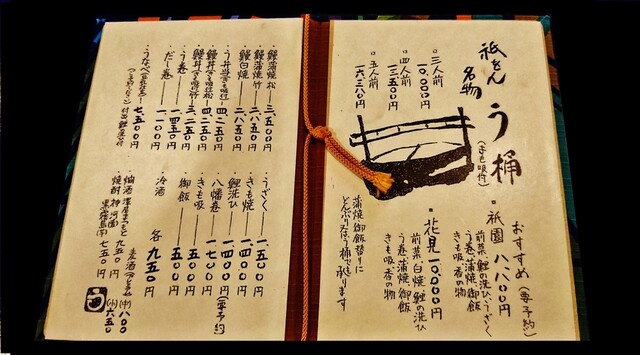 祇をん
名物
う桶
(きも吸付)
三人前
一〇.〇〇〇円
四人前
一三.五〇〇円
五人前
一六.三八〇円
おすすめ(要予約)
祇園 八.八〇〇円
前菜、鯉の洗ひ、うざく
う巻、蒲焼、御飯
きも吸、香の物
花見 一〇.〇〇〇円
前菜、白焼、鯉の洗ひ
う巻、蒲焼、御飯
きも吸、香の物
蒲焼御飯替りに
どんぶり又はう桶で承ります
鰻蒲焼松 三.五〇〇円
鰻蒲焼竹 二.八五〇円
鰻白焼 二.八五〇円
う丼 四.二五〇円
鰻丼(きも吸付)松 四.二五〇円
鰻丼(きも吸付)竹 三.二五〇円
う巻 一.四五〇円
だし巻 一.一〇〇円
うなべ 七.五〇〇円
うざく 一.五〇〇円
きも焼 一.四〇〇円
鯉洗ひ 一.四〇〇円
八幡巻 一.七〇〇円(要予約)
きも吸 五〇〇円
御飯 五〇〇円
冷酒 各九五〇円
燗酒 澤屋まつもと 九五〇円
焼酎 神河圓
黒霧島(芋) 七五〇円
麦酒 (中)八〇〇
(小)六五〇